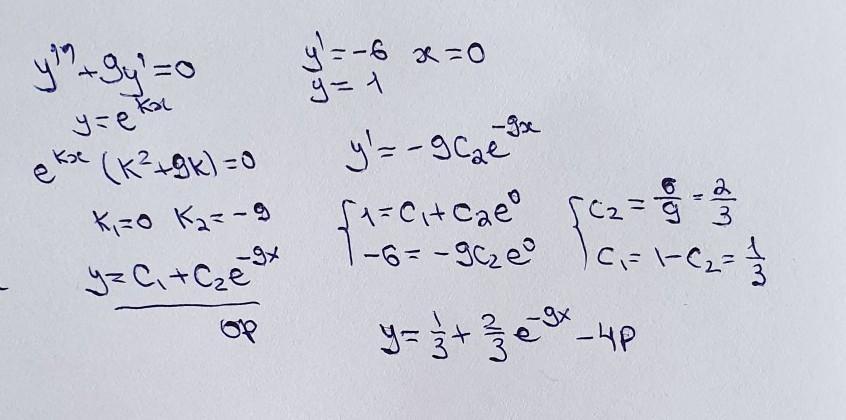 y'' + 9y' = 0
y = e^{kx}
e^{kx} (k² + 9k) = 0
k₁ = 0 k₂ = -9
y = C₁ + C₂e^{-9x}
ОР
y' = -6 x = 0
y = 1
y' = -9C₂e^{-9x}
{ 1 = C₁ + C₂e⁰
-6 = -9C₂e⁰
{ C₂ = 6/9 = 2/3
C₁ = 1 - C₂ = 1/3
y = 1/3 + 2/3 e^{-9x} - ЧР